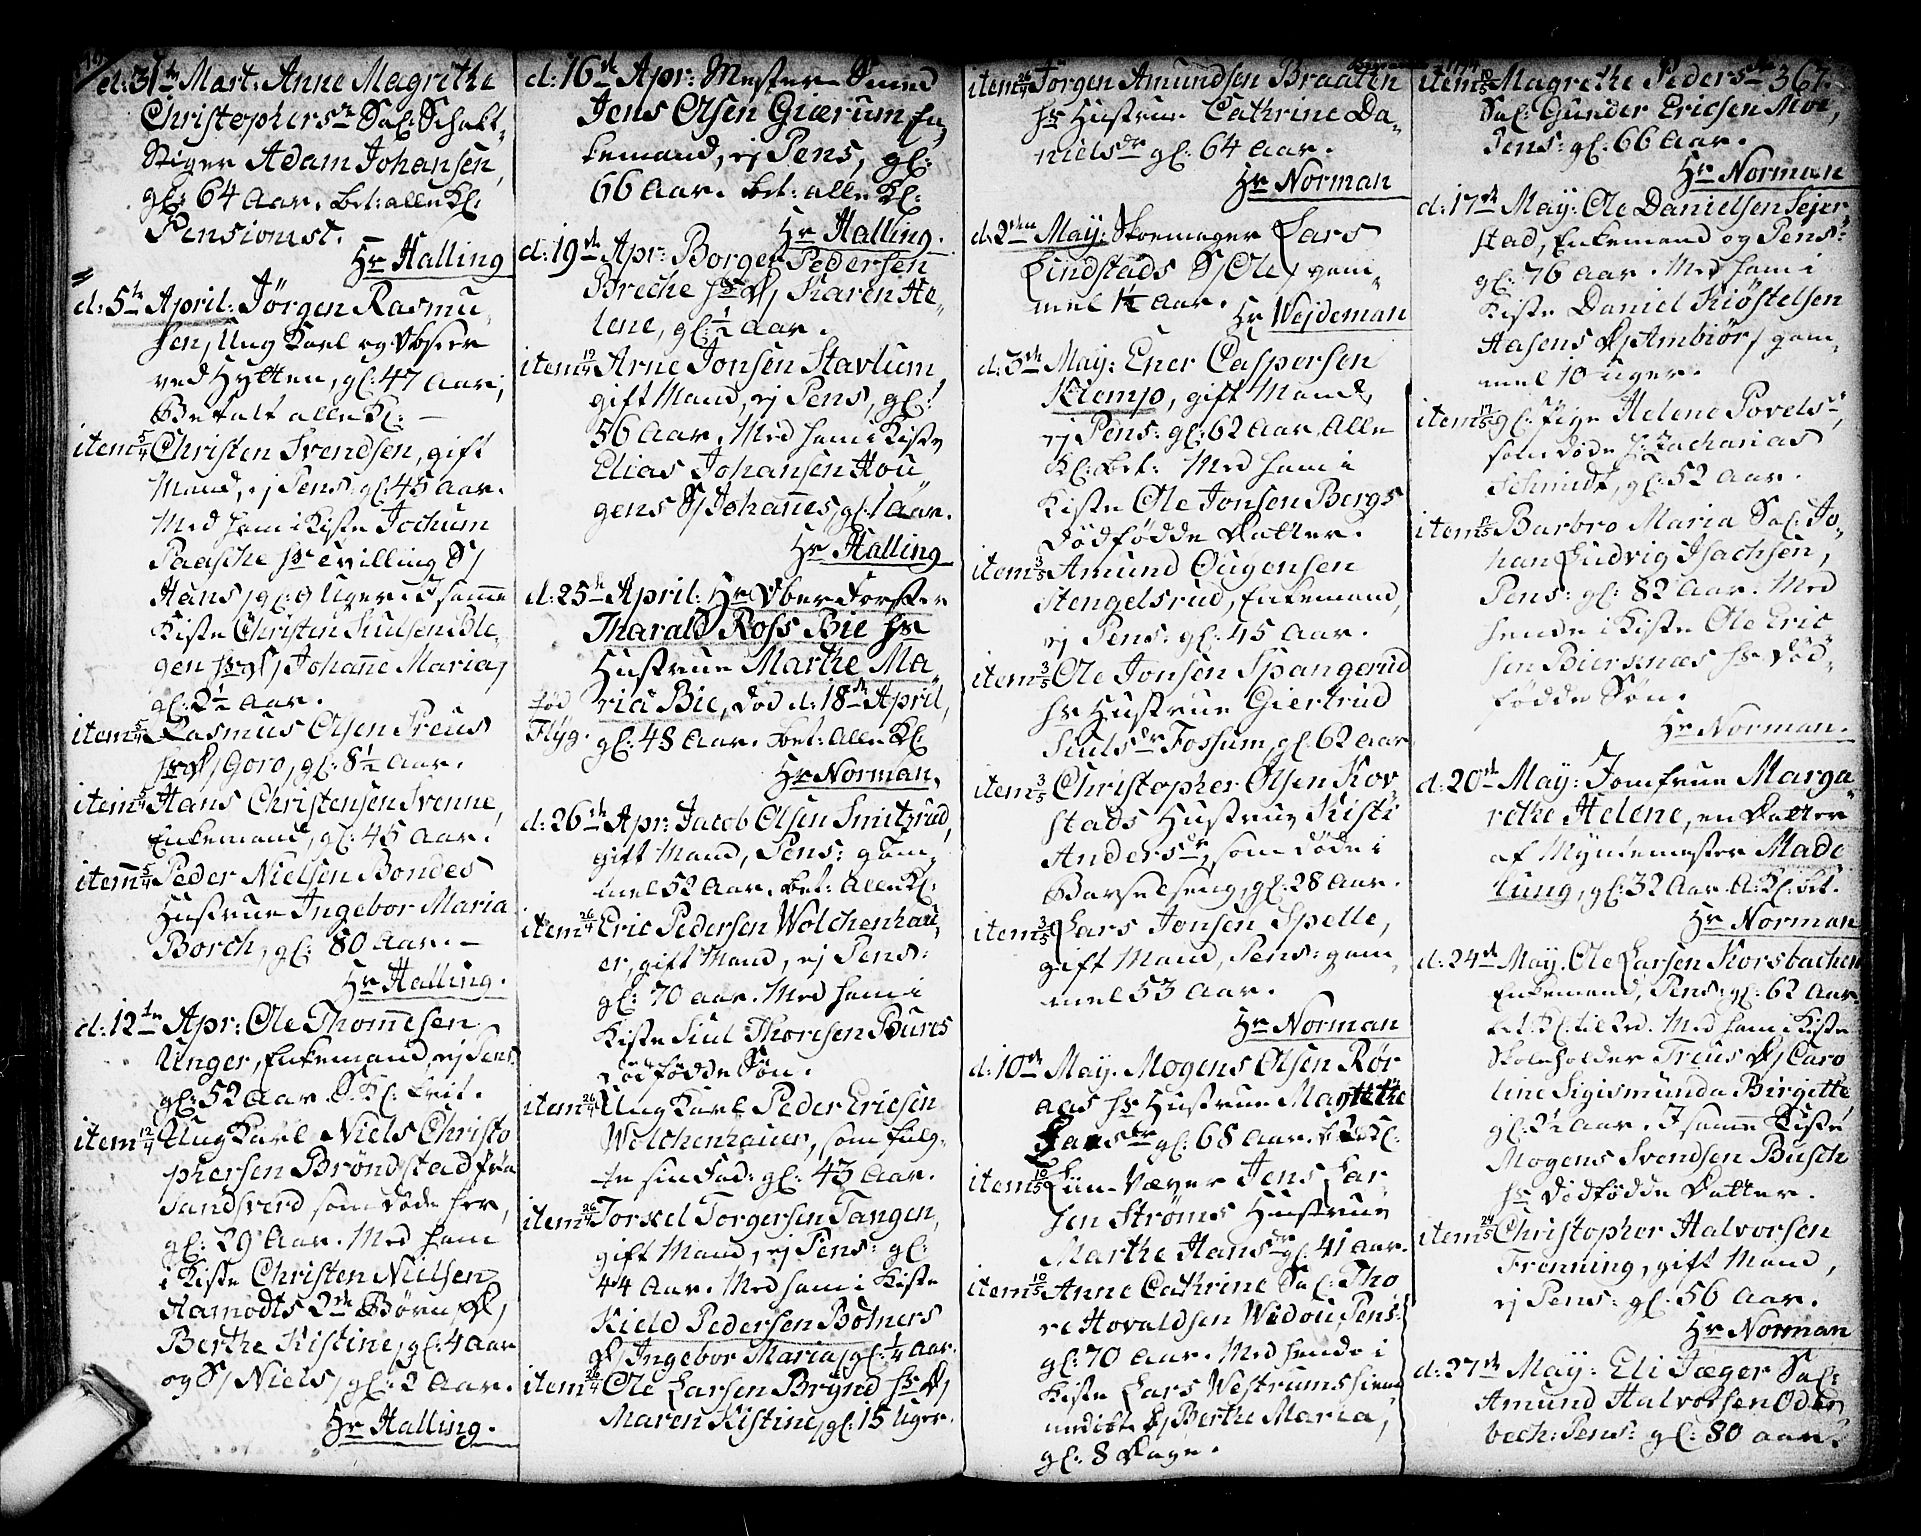 d: 31te Mart: Anne Magrethe
Christophersdr Sal: Schakt-
Stiger Adam Johansen,
gl: 64 Aar. bet: alle Kl:
Pensionist.
Hr Halling
d: 5te April: Jörgen Rasmu-
sen, Ung Karl og Obseer
ved Hytten, gl: 47 Aar,
Betalt alle Kl: –
item 5/4 Christen Svendsen, gift
Mand, ej Pens: gl: 45 Aar.
Med ham i Kiste Jochum
Paasche hs tvilling S/
Hans/ gl: 9 Uger. I samme
Kiste Christen Juulsen Ble-
gen hs D/ Johanne Maria/
gl: 2½ Aar.
item 5/4 Rasmus Olsen Preus
hs D/ Goro, gl: 8½ Aar.
item 5/4 Hans Christensen Svenne,
Enkemand, gl: 45 Aar.
item 5/4 Peder Nielsen Bondes
Hustrue Ingebor Maria
Borch, gl: 80 Aar. –
Hr Halling.
d: 12te Apr: Ole Thomesen
Unger, Enkemand, ej Pens:
gl: 52 Aar. Kl: frit.
item 12/4 Ung Karl Niels Christo
phersen Bröndstad fra
Sandsverd som döde her,
gl: 29 Aar. Med ham
i Kiste Christen Nielsen
Hamodts 2de Börn D/
Berthe Kistine/ gl: 4 Aar
og S/ Niels/ gl: 2 Aar.
Hr Halling.
d: 16de Apr: Mester Smed
Jens Olsen Giærum En-
kemand, ej Pens, gl:
66 Aar. bet: alle Kl:
Hr Halling.
d: 19de Apr: Borger Pedersen
Breche hs D/ Karen He-
lene, gl: ½ Aar.
item 19/4 Arne Jonsen Stavlum
gift Mand, ej Pens, gl:
56 Aar. Med ham i Kiste
Elias Johansen Hou
gens S/ Johannes/ gl: 1 Aar.
Hr Halling
d: 25de April: Hr Oberforster
Tharald Ross Bie hs
Hustrue Marthe Ma
ria Bie, död d: 18de April,
född
Flyg.
gl: 48 Aar. bet: Alle Kl
Hr Norman.
d: 26de Apr: Jacob Olsen Smitzrud,
gift Mand, Pens: gam-
mel 52 Aar. bet: Alle Kl:
item 26/4 Eric Pedersen Wolchenhau-
er, gift Mand, ej Pens:
gl: 70 Aar. Med ham i
Kiste Juul Thorisen Bures
dödfödde Sön.
item 26/4 Ung Karl Peder Ericsen
Wolchenhauer, som fulg-
te sin Fad: gl: 43 Aar.
item 26/4 Torkel Torgersen Tangen,
gift Mand, ej Pens: gl:
44 Aar. Med ham i Kiste
Kield Pedersen Botners
D/ Ingebor Maria/ gl: ¼ Aar.
item 26/4 Ole Larsen Brynd hs D/
Maren Kistine/ gl: 15 Uger.
item 26/4 Jörgen Amundsen Braaten
hs Hustrue Cathrine Da-
nielsdr gl: 64 Aar.
Hr Norman
d: 2den May: Skoemager Lars
Lindstads S/ Ole/ gam-
mel 1¼ Aar.
Hr Wejdeman
d: 3de May: Ener Caspersen
Klemp, gift Mand,
ej Pens: gl: 62 Aar Alle
Kl: bet: Med ham i
Kiste Ole Jonsen Bergs
dödfödde Datter.
item 3/5 Amund Ougonsen
Stengelsrud, Enkemand,
ej Pens: gl: 45 Aar.
item 3/5 Ole Jonsen Spangerud
hs Hustrue Giertrud
Juulsdr Fossum, gl: 62 Aar
item 3/5 Christopher Olsen Kor-
stads Hustrue Kisti
Andersdr, som döde i
Barselseng, gl: 28 Aar.
item 3/5 Lars Jonsen Spelle,
gift Mand, Pens: gam-
mel 53 Aar.
Hr Norman
d: 10de May. Mogens Olsen Rör
aas hs Hustrue Magrethe
Larsdr gl: 68 Aar.
item 10/5 Liin-Væver Jens Lar
sen Ströms Hustrue
Marthe Hansdr gl: 41 Aar.
item 10/5 Anne Cathrine Sal: Tho
re Hovaldsen Widou Pens:
gl: 70 Aar. Med hende i
Kiste Lars Westrums hiem-
mediöbt D/ Berthe Maria,
gl: 8 Dage.
367.
item 10/5 Magrethe Pedersdr
Sal: Gunder Ericsen Moe,
Pens: gl: 66 Aar.
Hr Norman
d: 17de May: Ole Danielsen Sejer-
stad, Enkemand og Pens:
gl: 76 Aar. Med ham i
Kiste Daniel Kiöstelsen
Aasens D/ Ambiör/ gam-
mel 10 Uger.
item 17/5 gl: Pige Helene Povelsdr,
som döde h: Zacharias
Schmidt, gl: 52 Aar.
item 17/5 Barbro Maria Sal: Jo-
han Ludvig Isachsen,
Pens: gl: 82 Aar. Med
hende i Kiste Ole Eric
sen Biersenæs hs död-
födde Sön.
Hr Norman.
d: 20de May: Jomfrue Marga-
rethe Helene, en Datter
af Myntemester Made
lung, gl: 32 Aar A: Kl: bet.
Hr Norman
d: 24de May. Ole Larsen Korsbachen
Enkemand, Pens: gl: 62 Aar.
bet: Kl: til Ed. Med ham i Kiste
Skoleholder Treus D/ Caro
line Sigismunda Birgitte
gl: 2½ Aar. I samme Kiste
Mogens Svendsen Busch
hs dödfödde Datter.
item 24/5 Christopher Halvorsen
Frenning, gift Mand,
ej Pens: gl: 56 Aar.
Hr Norman
d: 27de May: Eli Jæger Sal:
Amund Halvorsen Oden
bech: Pens: gl: 80 Aar.